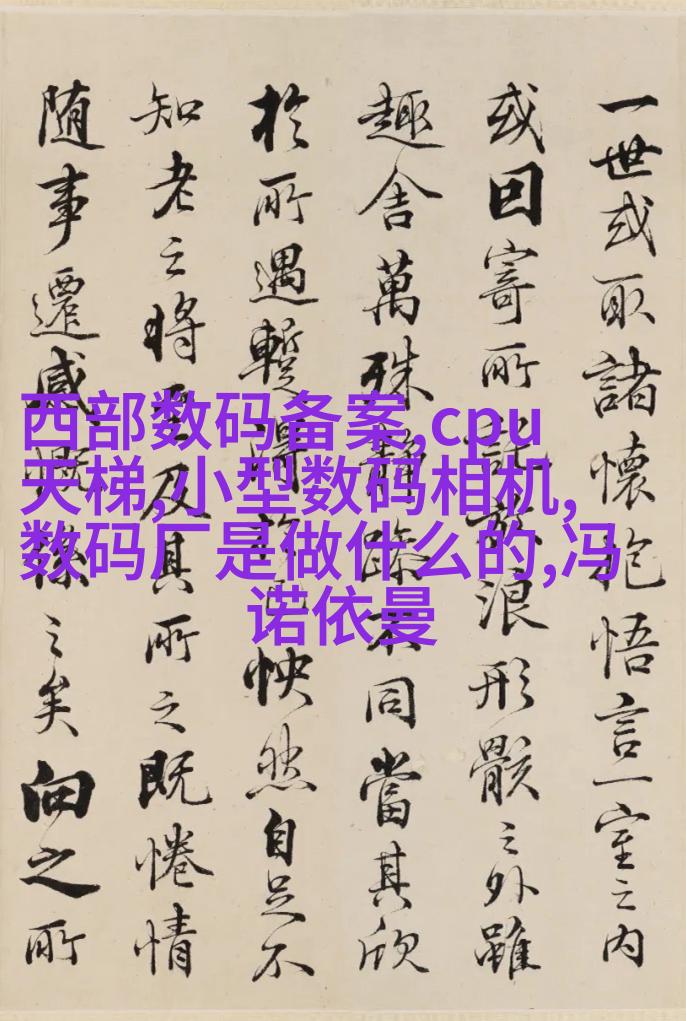 一世或取諸懷抱悟言一室之内
或因寄所託放浪形骸之外雖
趣舍萬殊靜躁不同當其欣
於所遇蹔得於己怏然自足不
知老之將至及其所之既惓情
随事遷感慨係之矣向之所
西部数码备案,cpu
天梯,小型数码相机,
数码厂是做什么的,冯
诺依曼